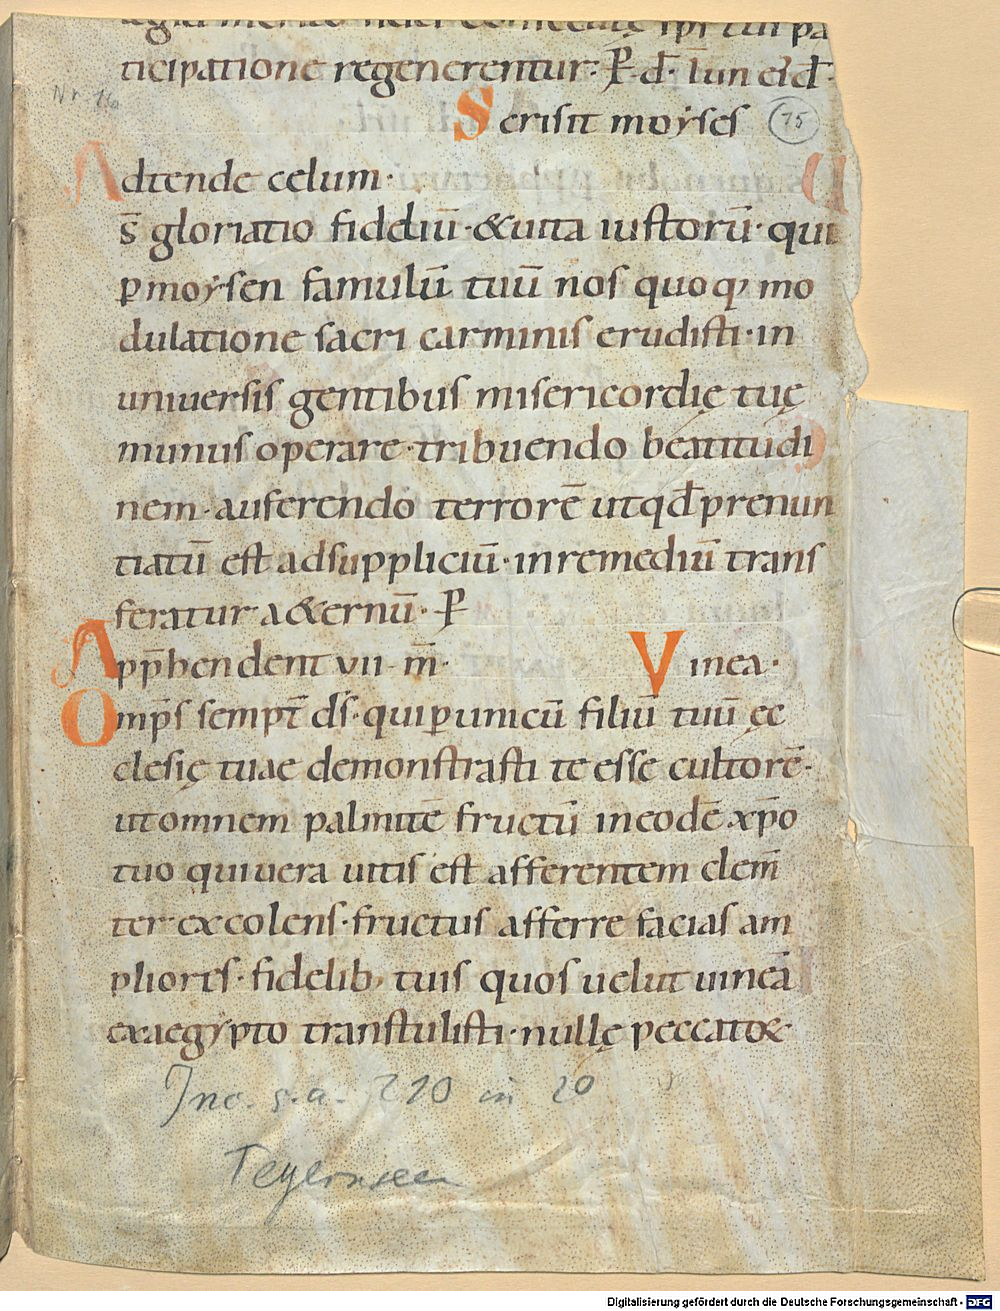 ticipatione regenerentur · P̄ · d̄ · lun ei᷒d̄ ·
Nr. 16
Scrisit moẏses
75
Adtende celum ·
D̄s gloriatio fideliū · & uita iustorū · qui
ꝑ moẏsen famulū tuū nos quoq; mo
dulatione sacri carminis erudisti · in
uniuersis gentibus misericordię tuę
munus operare · tribuendo beatitudi
nem · auferendo terrorē ut qd̄ prenun
tiatū est ad suppliciū · in remediū trans
feratur a&ernū · P̄
Appͫhendent vii · m̄ · Vinea ·
Omp̄s sempt̄ d̄s · qui ꝑ unicū filiū tuū ęc
clesię tuae demonstrasti te esse cultorē ·
ut omnem palmitē fructū in eodē xp̄o
tuo qui uera uitis est afferentem clem̄
ter excolens · fructus afferre facias am
pliores · fidelib; tuis quos uelut uineā
ex aegẏpto transtulisti · nullę peccatoꝝ
Inc. s. a. 210 in 2o
Tegernsee
Digitalisierung gefördert durch die Deutsche Forschungsgemeinschaft - DFG